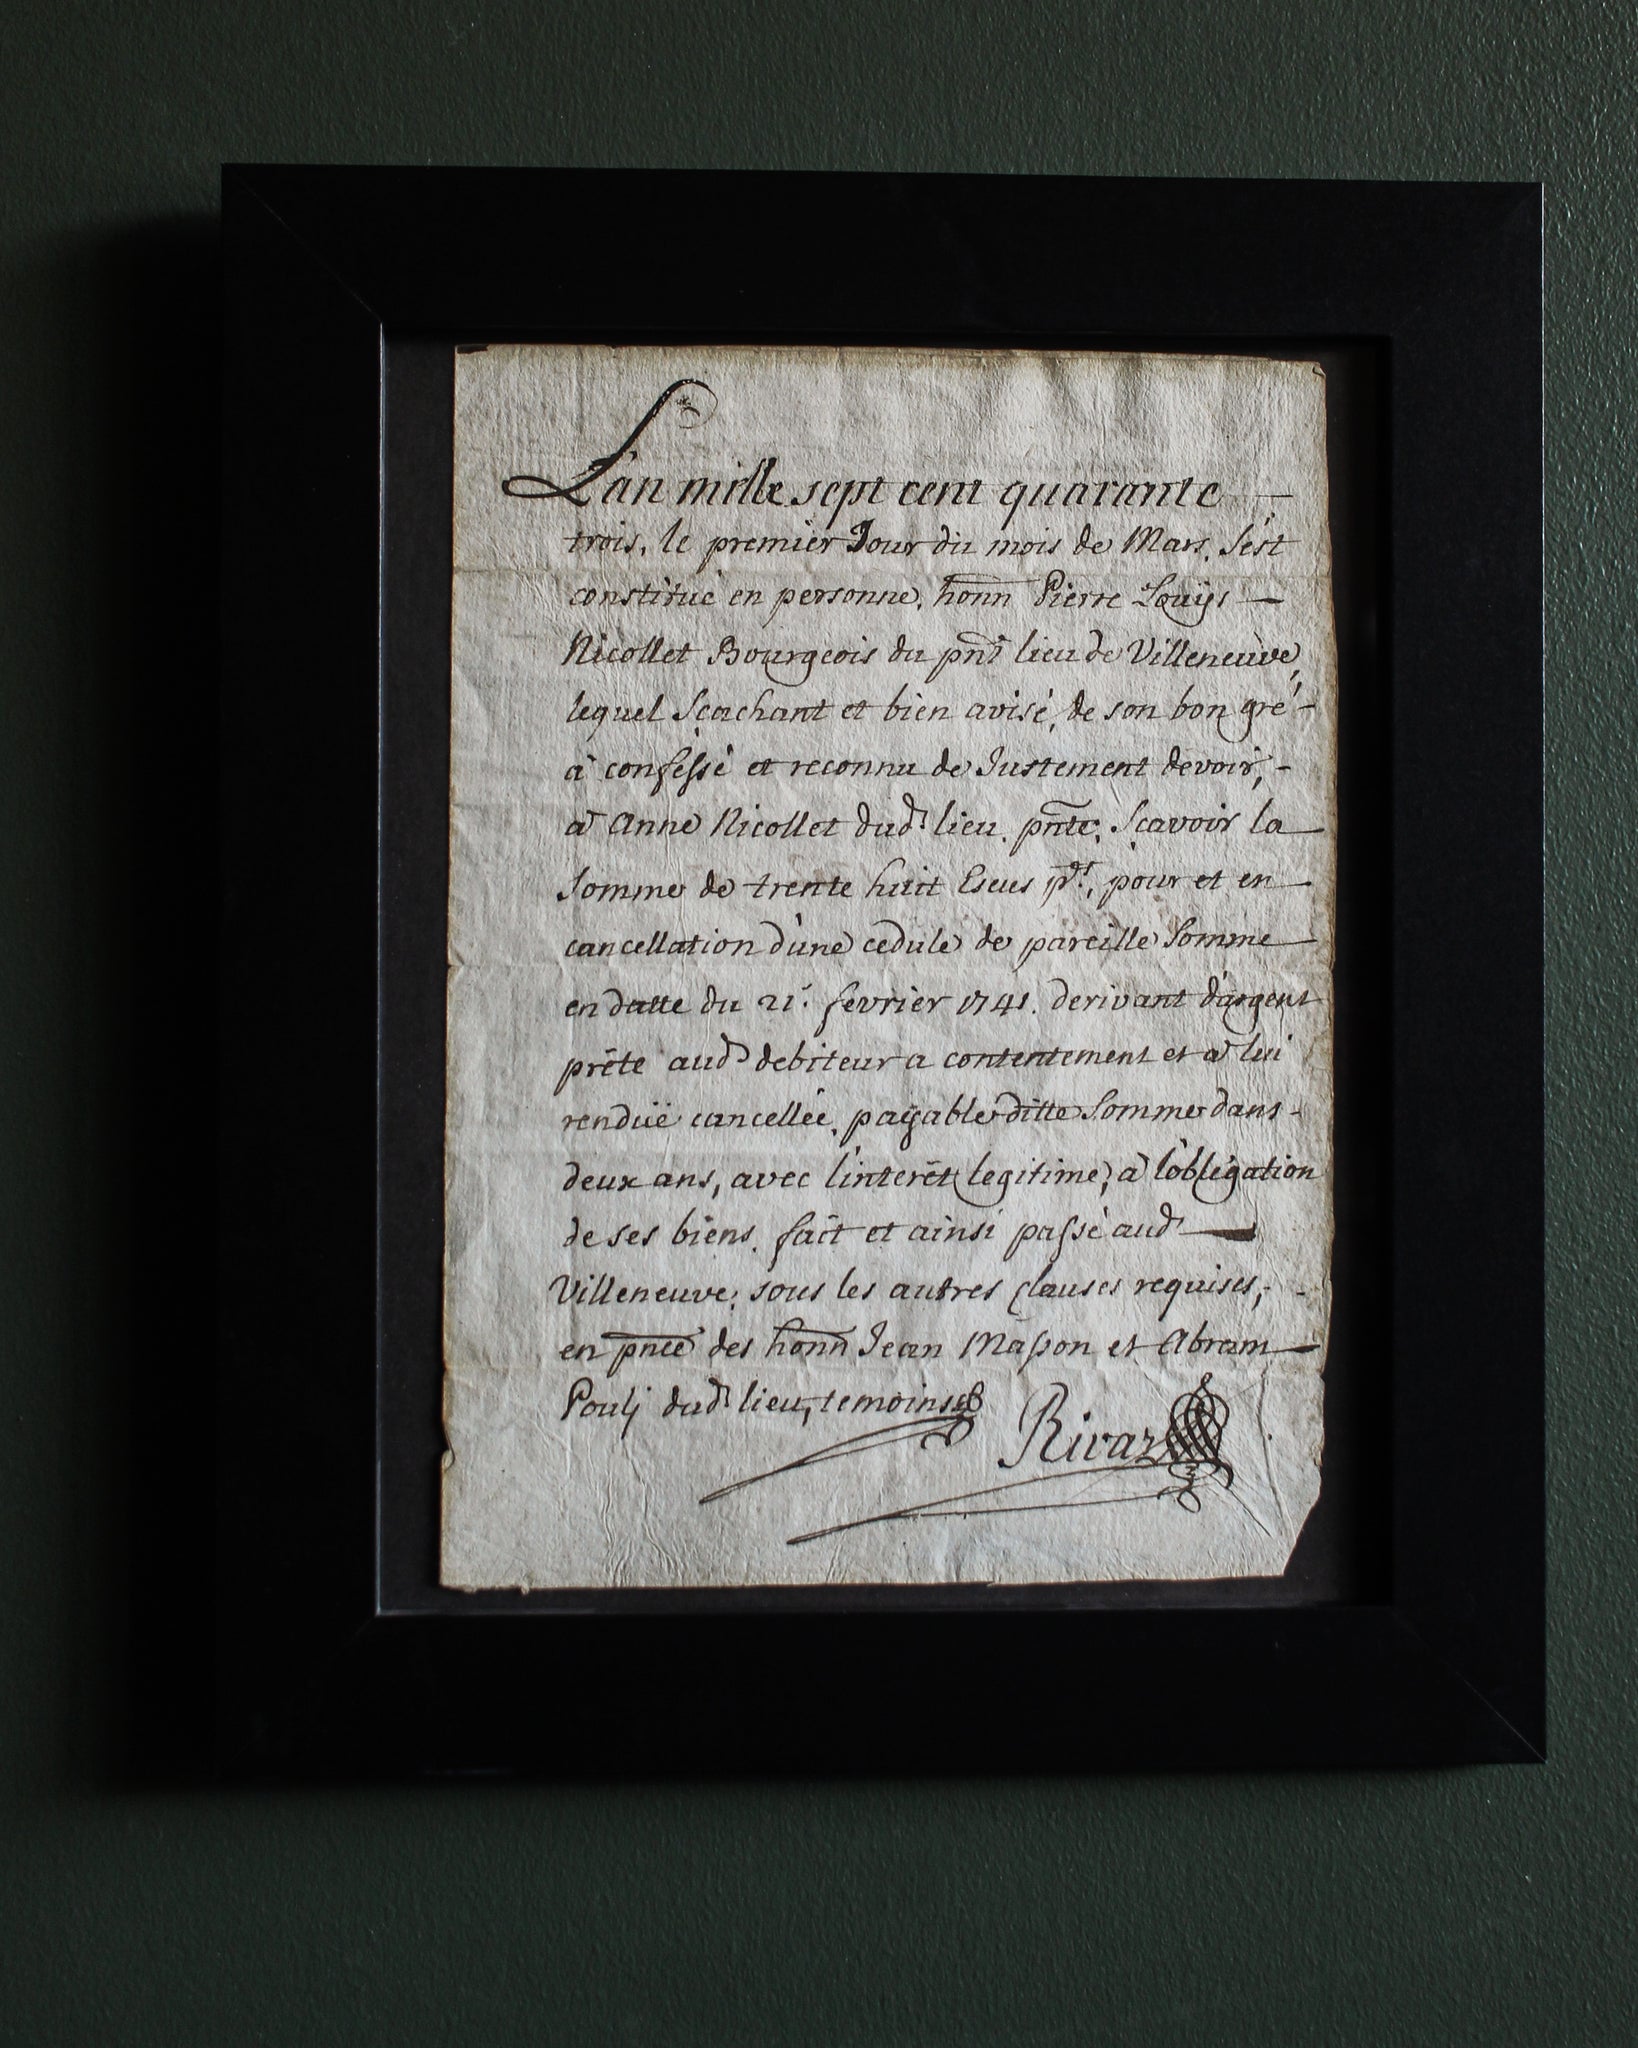 L'an mille sept cent quarante
trois, le premier Jour du mois de Mars. s'est
constitué en personne, honn Pierre Louÿs
Nicollet Bourgeois du pnt lieu de Villeneuve,
lequel Scachant et bien avisé, de son bon gré
à confessé et reconnu de Justement devoir,
à Anne Nicollet dud. lieu. pnte, Scavoir la
Somme de trente huit Escus pts, pour et en
cancellation d'une cedule de pareille Somme
en datte du 21. fevrier 1741. derivant d'argent
prête aud. debiteur a contentement et à lui
renduë cancellée, païable ditte Somme dans
deux ans, avec l'interêt legitime, à l'obligation
de ses biens. fait et ainsi passé aud
Villeneuve, sous les autres clauses requises,
en pnce des honn Jean Masson et Abram
Pouly dud lieu, temoins
Rivaz